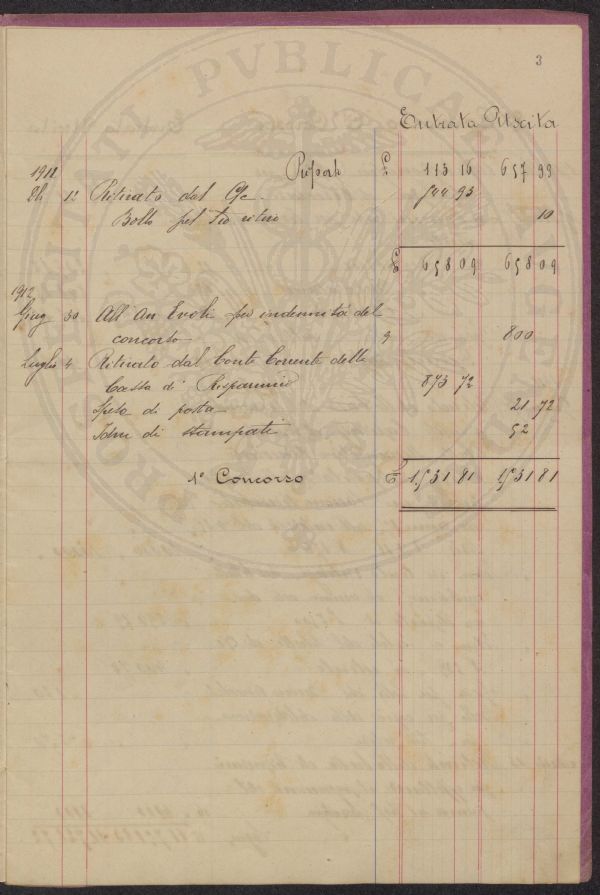 PROPRIETATI PVBLICAE
3
Entrata Uscita
Riporti £ 113 16 657 99
1912
12 Ritirato dal C/c. 544 93
Bollo pel 10
£ 658 09 658 09
1912
Giug 30 All' Evoli per indennità del
concerto 9 800
Luglio 4 Ritirato dal Conto Corrente della
Cassa di Risparmio 873 72
Spese di posta 21 72
Idem di stampati 52
1° Concorso £ 1531 81 1531 81